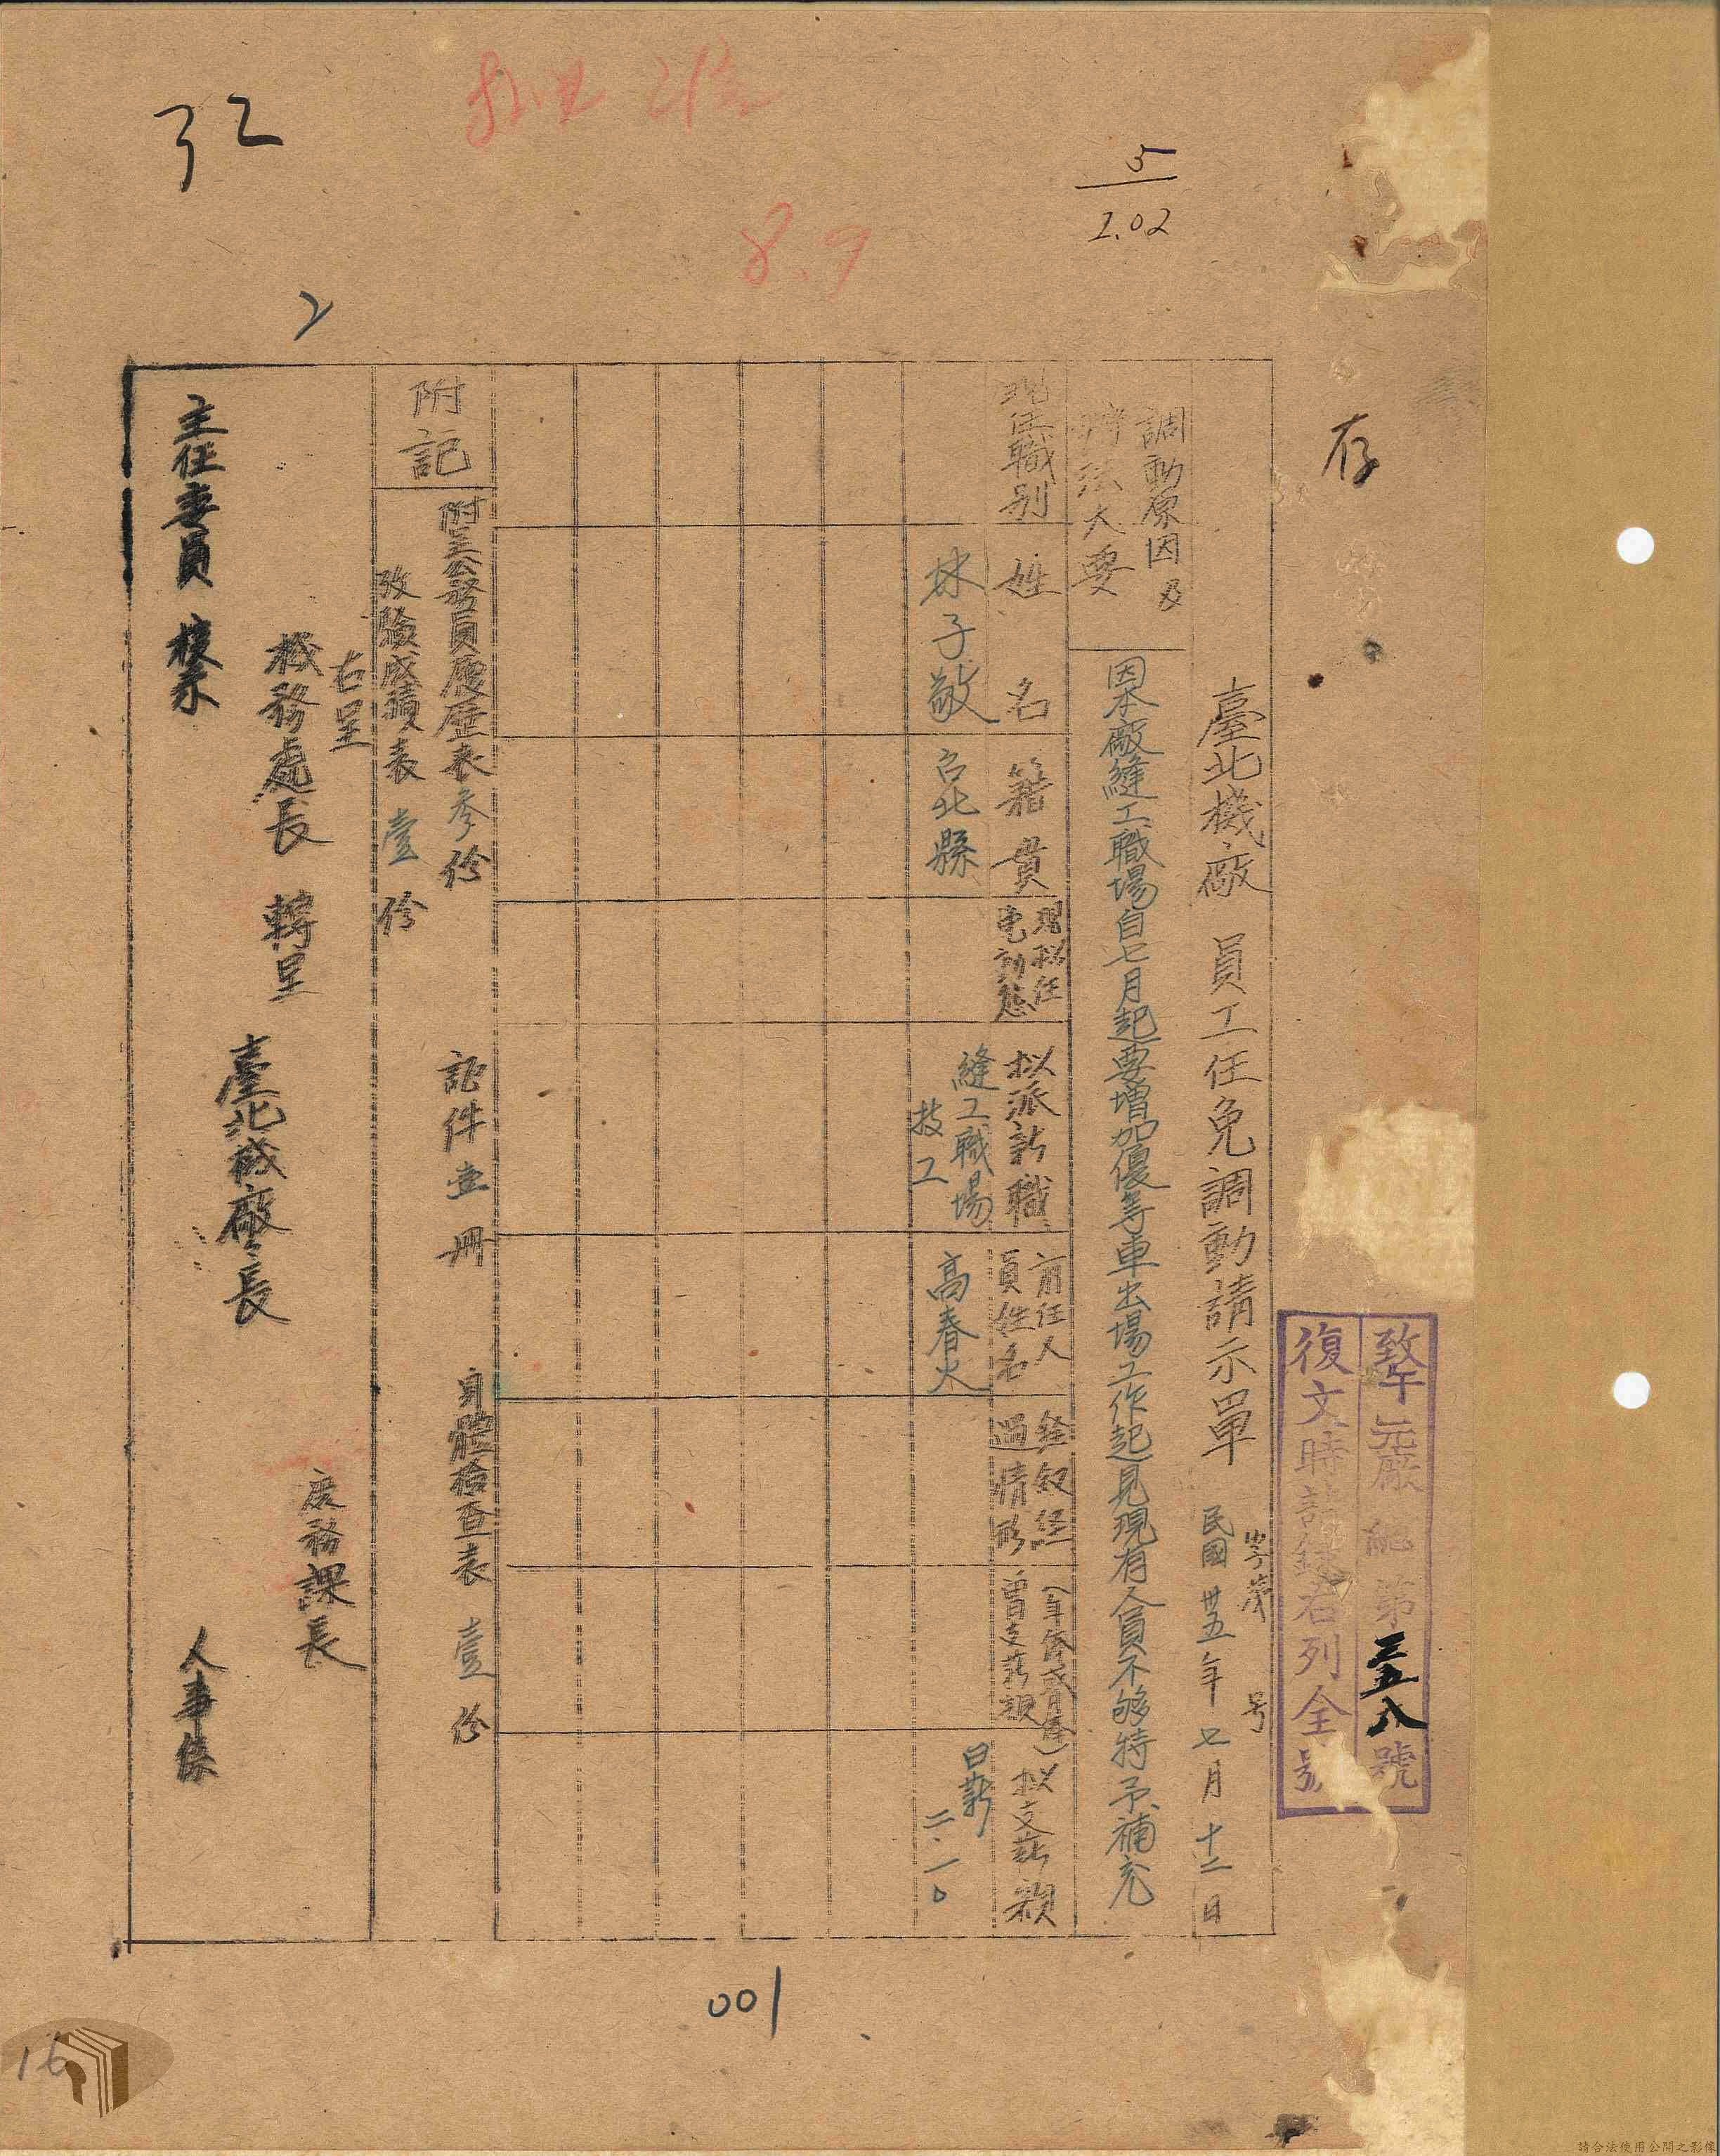 存
致午元廠總第三五八號
復文時請錄右列全號
5
2.02
8.9
臺北機廠 員工任免調動請示單 民國卅五年七月十二日
字第 号
調動原因及
辦法大要
因本廠縫工職場自七月起要增加優等車出場工作起見現有人員不够特予補充
現任職別
姓名
籍貫
現拟任
免動態
拟派新職
前任人
員姓名
銓叙経
過情形
(年俸或月俸)
曾支薪額
拟支薪額
林子敬
台北縣
縫工職場
技工
高春火
日薪
二.一○
附記
附呈公務員履歷表参份
証件壹册
身體檢查表壹份
攷驗成績表壹份
右呈
機務處長 轉呈
主任委員 核示
臺北機廠廠長
庶務課長
人事係
2
001
16
請合法使用公開之影像